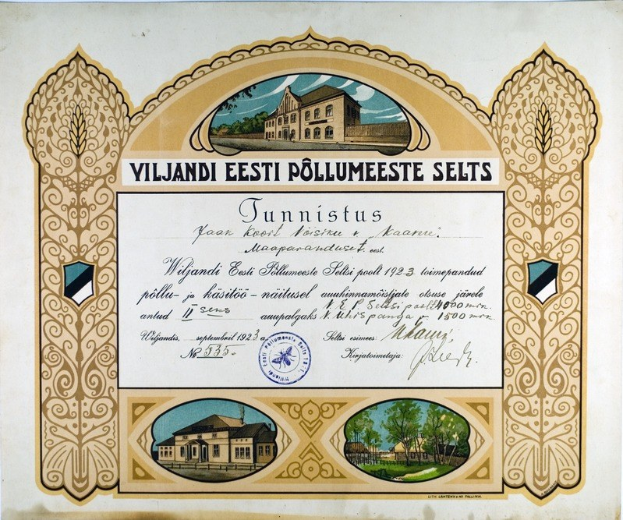 VILJANDI EESTI PÕLLUMEESTE SELTS
Tunnistus
Jaak Kooril Võisiku v. Kaavu
Maaparanduset eest
Wiljandi Eesti Põllumeeste Seltsi poolt 1923 toimepandud
põllu- ja käsitöö-näitusel auuhinnamõistjate otsuse järele
antud II sens auupalgaks V. E. P. Seltsi poolt 4000 mrk.
V. Ühispanga p. 1500 mrk.
Wiljandis, septembril 1923 a. Seltsi esimees
№ 535. Kirjatoimetaja:
Eesti Põllumeeste Selts